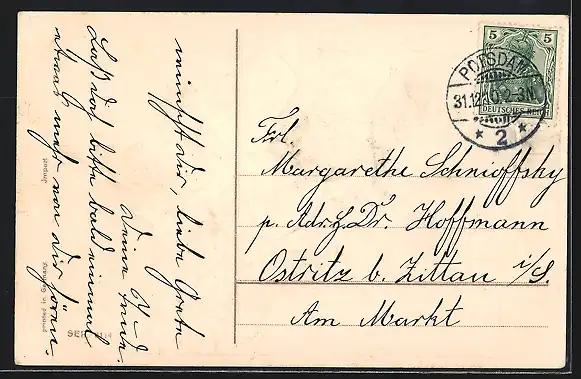 wünscht Dir, liebe Grete
Deine
Laß doch bitte bald einmal
etwas mehr von Dir hören.
Import
printed in Germany
SER
5 5
DEUTSCHES REICH
POTSDAM
31.12.10. 2-3N.
* 2 *
Frl.
Margarethe Schnioffsky
p. Adr. H. Dr. Hoffmann
Ostritz b. Zittau i/S.
Am Markt